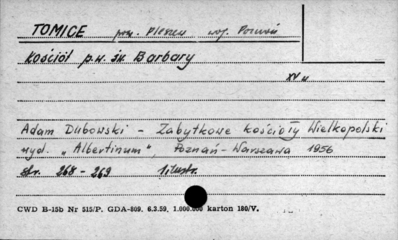 TOMICE pow. Pleszew woj. Poznań
Kościół p.w. św. Barbary
XV w
Adam Dubowski - Zabytkowe kościoły Wielkopolski
wyd. „Albertinum", Poznań - Warszawa 1956
str. 268 - 269 1 ilustr.
CWD B-15b Nr 515/P. GDA-809. 6.3.59, 1.000.000 karton 180/V.